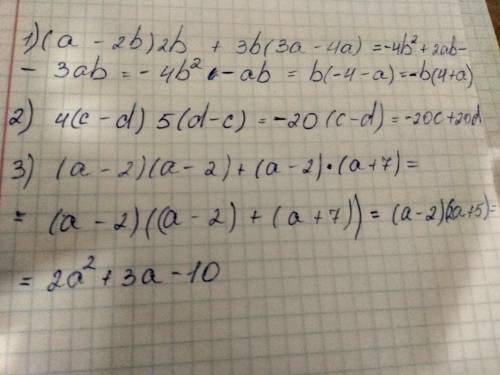 1) (a - 2b)2b + 3b(3a - 4a) = -4b² + 2ab -
- 3ab = - 4b² - ab = b(-4 - a) = -b(4+a)
2) 4(c - d) 5(d - c) = -20(c-d) = -20c+20d
3) (a - 2)(a - 2) + (a - 2)·(a+7) =
= (a - 2)((a - 2) + (a+7)) = (a-2)(2a+5) =
= 2a² + 3a - 10